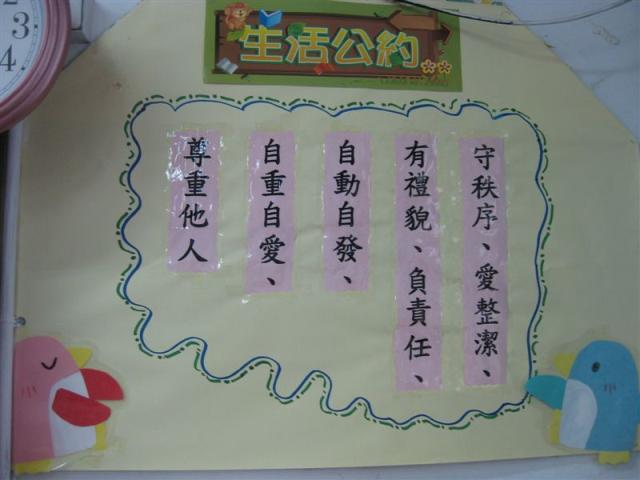 生活公約
守秩序、愛整潔、
有禮貌、負責任、
自動自發、
自重自愛、
尊重他人
2
3
4